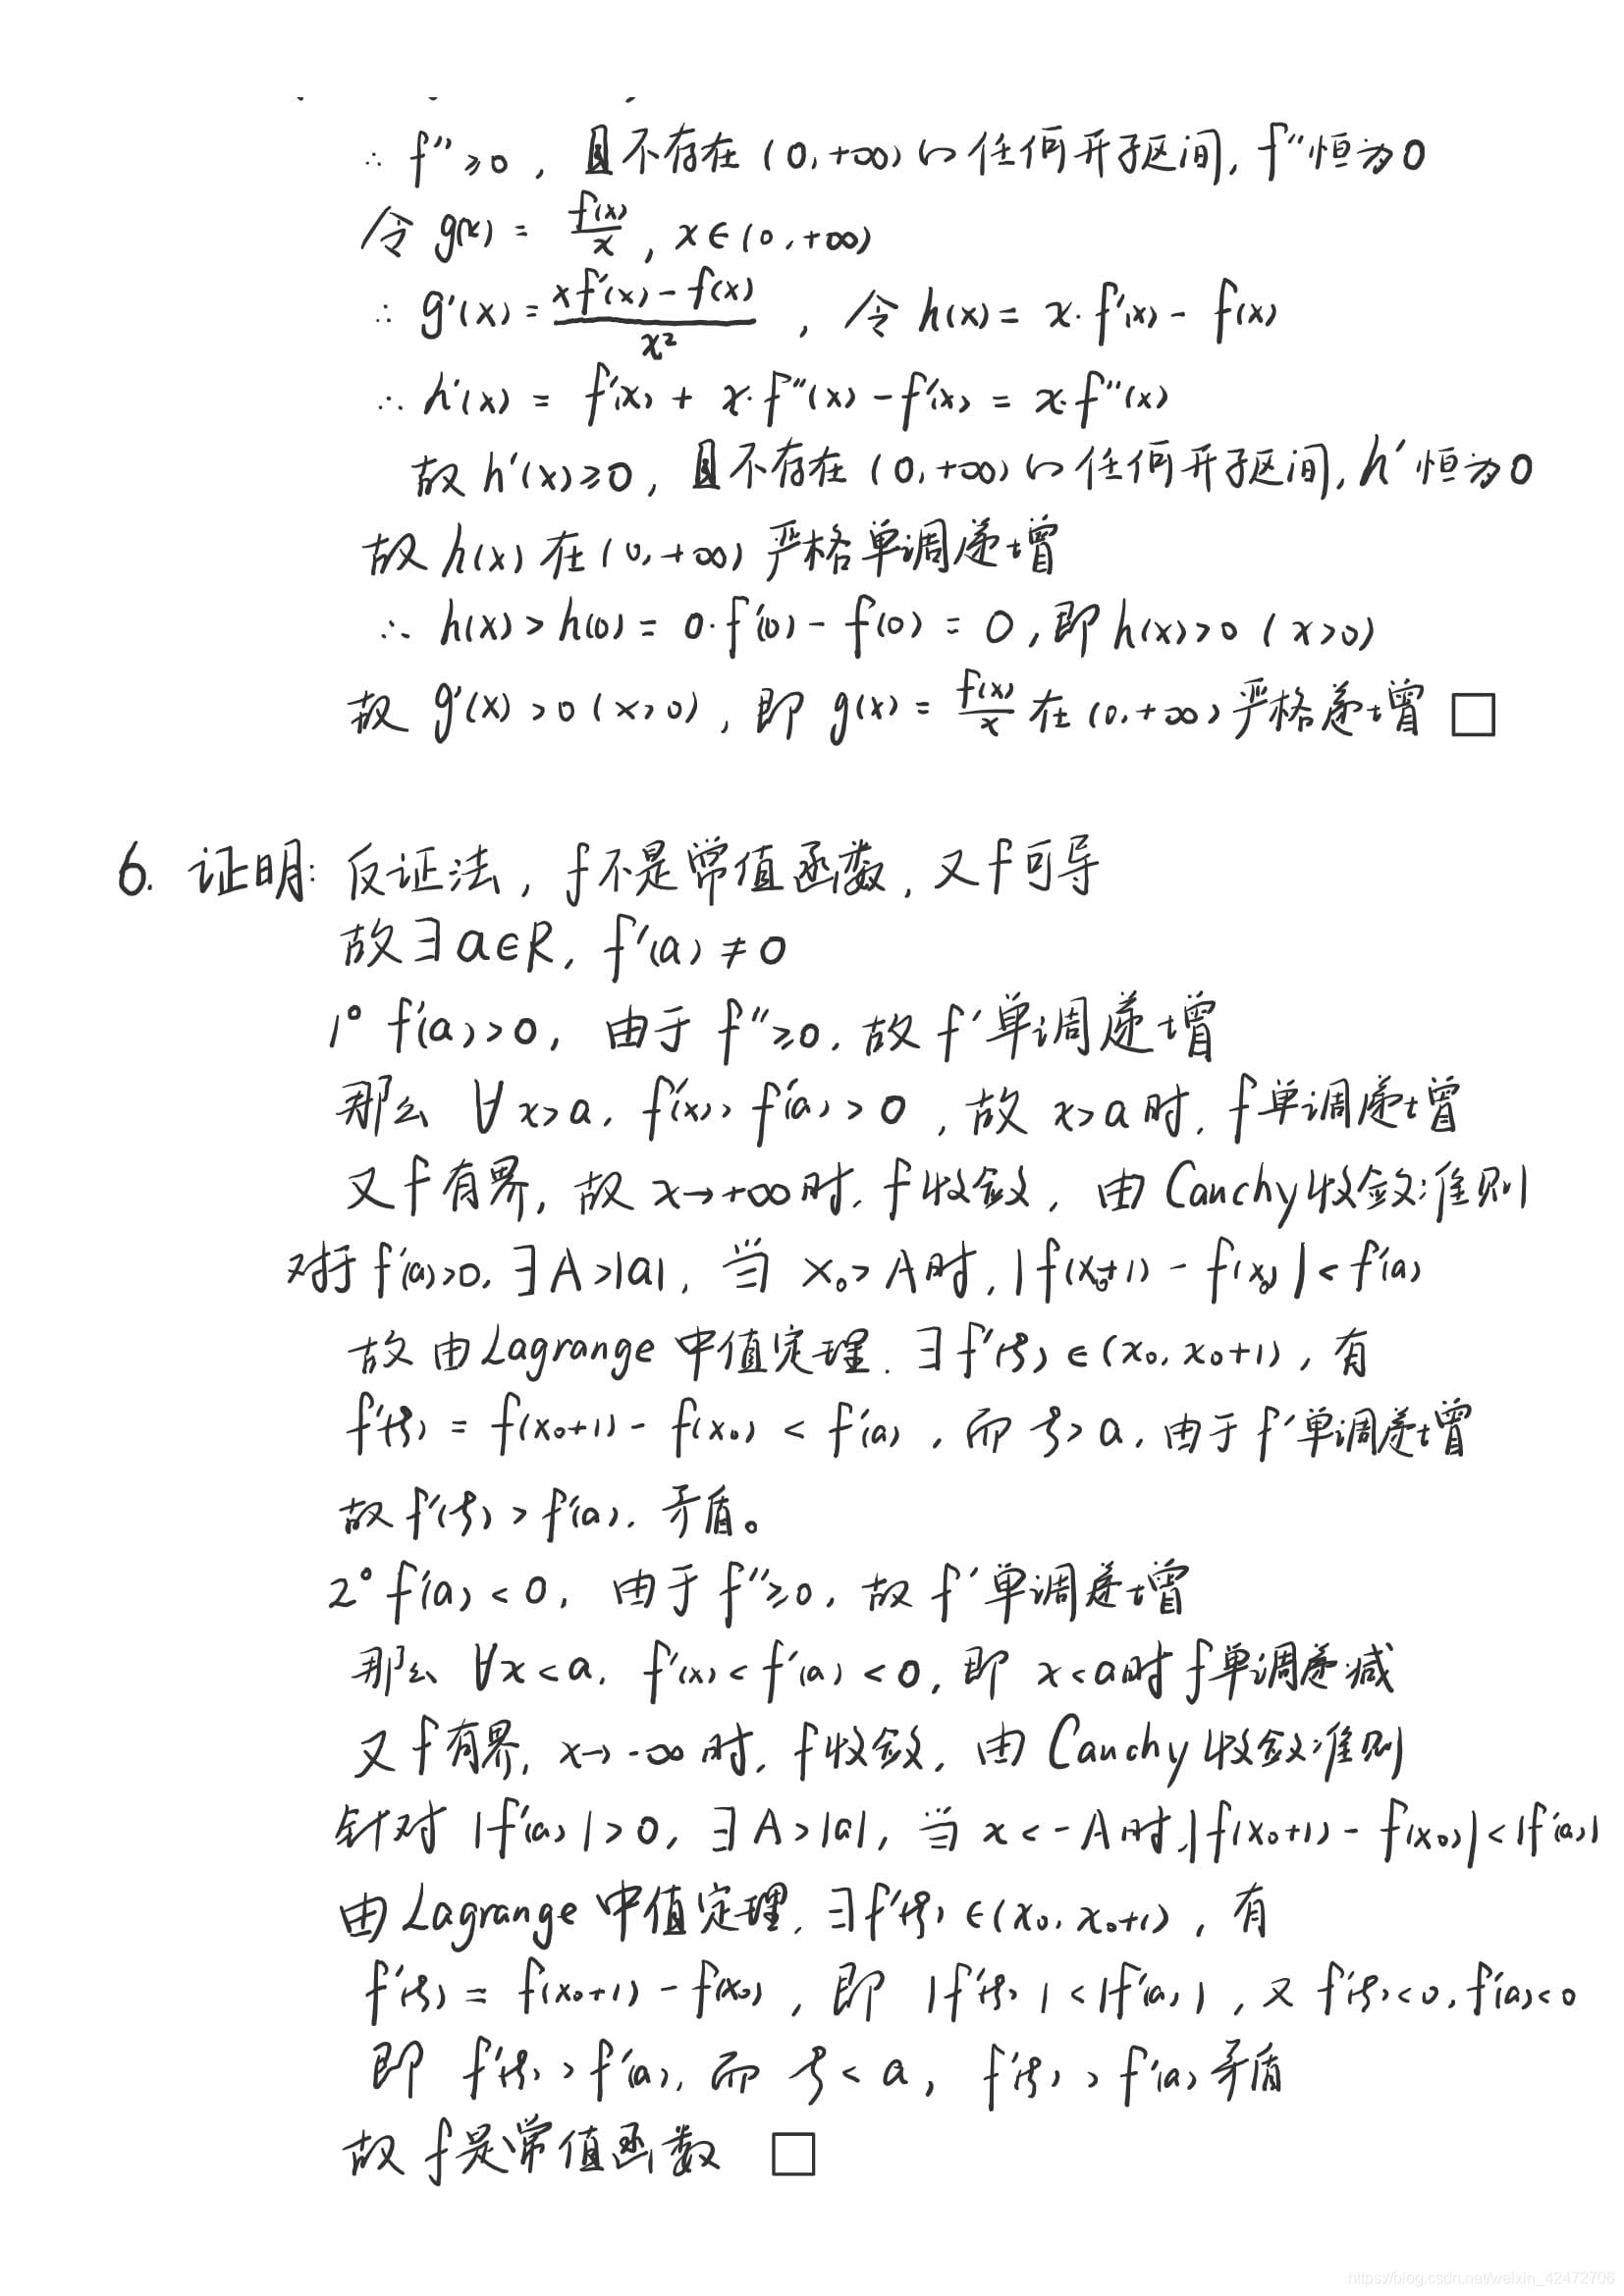 ∴ f''≥0, 且不存在(0,+∞)的任何开子区间, f''恒为0
令 g(x) = f(x)/x, x∈(0,+∞)
∴ g'(x) = (xf'(x)-f(x))/x², 令 h(x) = x·f'(x) - f(x)
∴ h'(x) = f'(x) + x·f''(x) - f'(x) = x·f''(x)
故 h'(x)≥0, 且不存在(0,+∞)的任何开子区间, h'恒为0
故 h(x) 在(0,+∞)严格单调递增
∴ h(x) > h(0) = 0·f'(0) - f(0) = 0, 即 h(x)>0 (x>0)
故 g'(x) >0 (x>0), 即 g(x) = f(x)/x 在(0,+∞)严格递增 □
6. 证明: 反证法, f不是常值函数, 又f可导
故∃a∈R, f'(a) ≠ 0
1° f'(a)>0, 由于 f''≥0, 故 f'单调递增
那么 ∀x>a, f'(x)>f'(a)>0, 故 x>a时, f单调递增
又f有界, 故 x→+∞时, f收敛, 由Cauchy收敛准则
对于f'(a)>0, ∃A>|a|, 当 x₀>A时, |f(x₀+1) - f(x₀)| < f'(a)
故由Lagrange中值定理, ∃f'(ξ)∈(x₀, x₀+1), 有
f'(ξ) = f(x₀+1) - f(x₀) < f'(a), 而 ξ>a, 由于f'单调递增
故f'(ξ) > f'(a), 矛盾。
2° f'(a) < 0, 由于 f''≥0, 故 f'单调递增
那么 ∀x<a, f'(x) < f'(a) < 0, 即 x<a时f单调递减
又f有界, x→-∞时, f收敛, 由Cauchy收敛准则
针对 |f'(a)|>0, ∃A>|a|, 当 x<-A时, |f(x₀+1) - f(x₀)| < |f'(a)|
由Lagrange中值定理, ∃f'(ξ)∈(x₀, x₀+1), 有
f'(ξ) = f(x₀+1) - f(x₀), 即 |f'(ξ)| < |f'(a)|, 又 f'(ξ)<0, f'(a)<0
即 f'(ξ) > f'(a), 而 ξ<a, f'(ξ) > f'(a) 矛盾
故 f是常值函数 □
https://blog.csdn.net/weixin_42472706